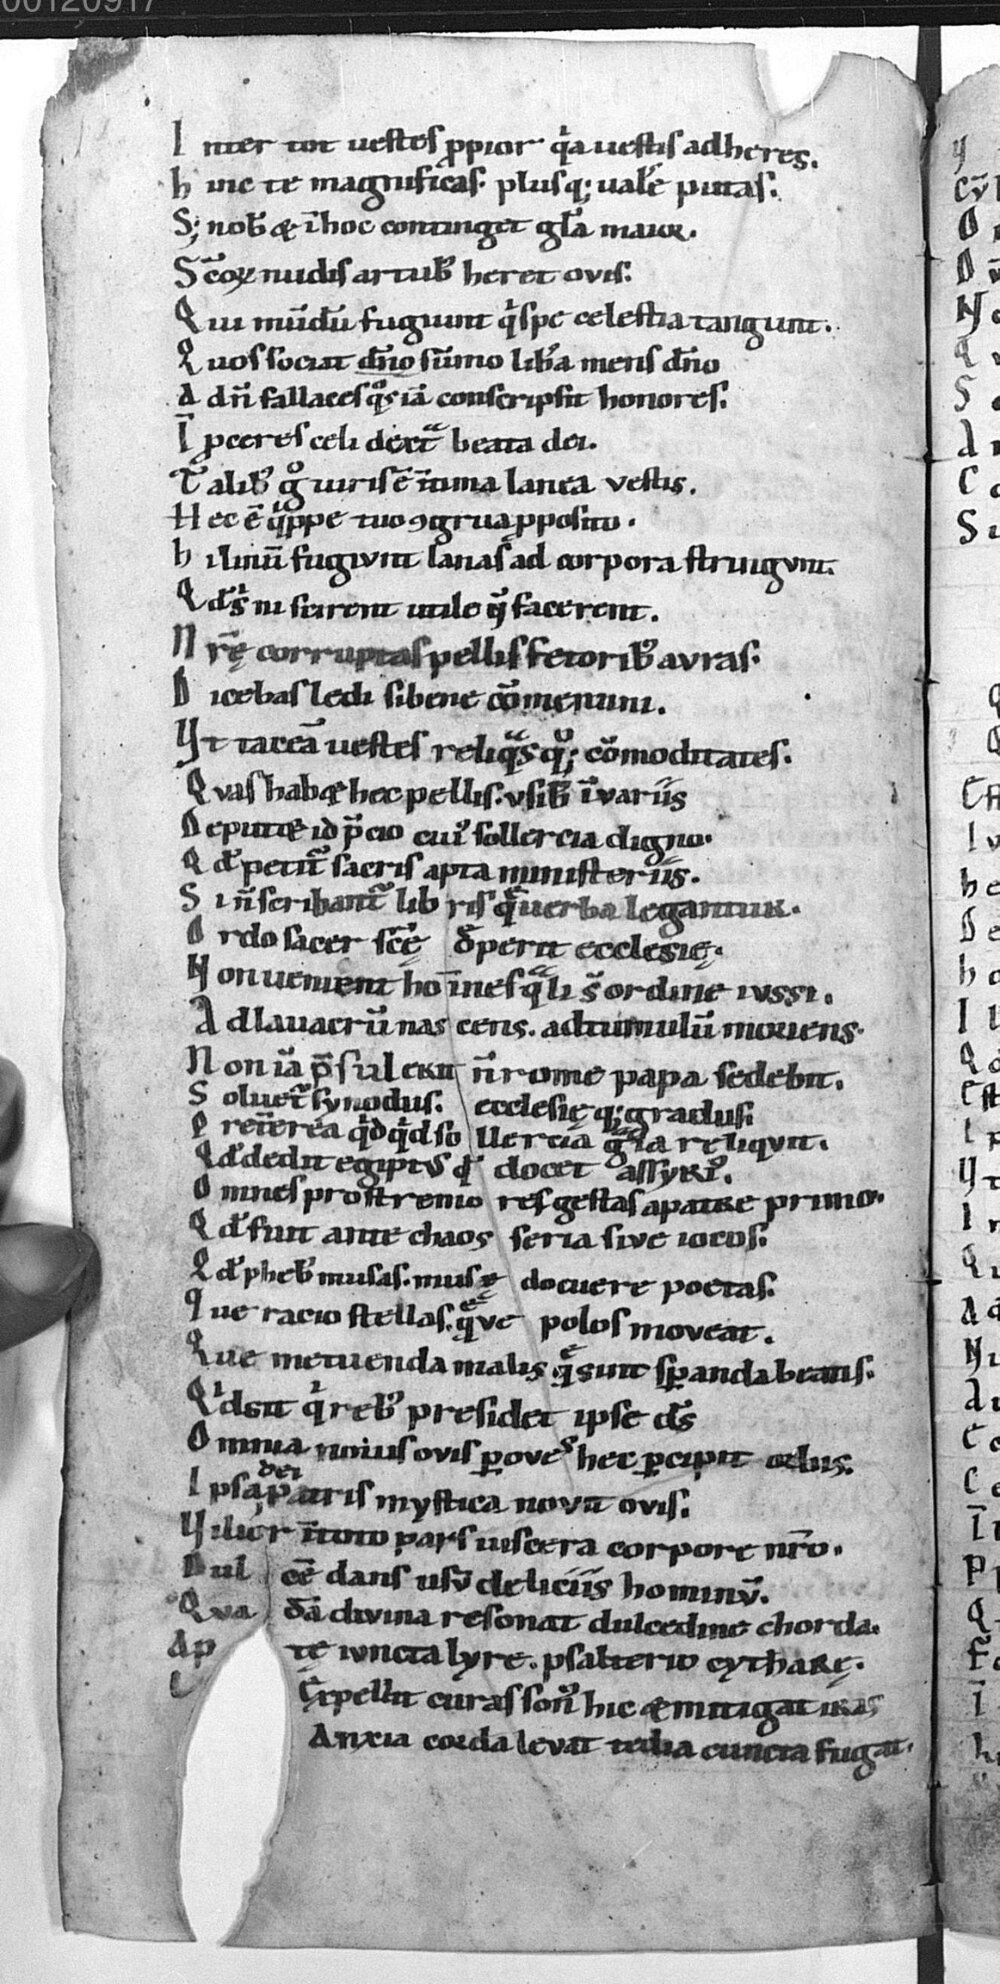 00120917
I nter tot uestes ꝓpior q̇a uestis adheres.
h inc te magnificas. plusq; ualere putas.
S; nob̄ & ī hoc continget gl̄a maior.
S c̄oꝝ nudis artub̄ heret ovis.
Q ui mūdū fugiunt q̇ spe celestia tangunt.
Q uos sociat dn̄o sūmo lib̄a mens dn̄o
A dn̄i fallaces qͦs iā conscripsit honores.
Ī ꝓceres celi dext̄a beata dei.
T alib̄ gͦ uiris ē n̄ tuma lanea vestis.
H ec ē q̇ppe tuo ꝯgrua ꝓposito.
h i linū fugivnt lanas ad corpora stringvnt.
Q d̄ s̄ ni scirent utile n̄ facerent.
N rę̄ corruptas pellis fetorib̄ avras.
D icebas ledi si bene cōmemini.
Y t taceā uestes reliqͣs qͦ; cōmoditates.
Q vas hab& hec pellis. vsib̄ ī variis
D eput& id p̄cio cui᾿ sollercia digno.
Q d̄ petit᷑ sacris apta ministeriis.
S i n̄ scribant᷑ lib ris qͣ uerba legantur.
O rdo sacer sc̄ę d̄perit ecclesię.
N on uenient hō ines qͣli s̄ ordine ivssi.
A d lauacrū nas cens. ad tumulū moriens.
N on iā p̄sul erit n̄ rome papa sedebit.
S oluet᷑ synodus. ecclesię q; gradus.
P ret̄erea q̇d q̇d so llercia gͣla reliqvit.
Q d̄ dedit egiptꝰ qd̄ docet assyri᾿.
O mnes prostremo res gestas a patre primo.
Q d̄ fuit ante chaos seria sive iocos.
Q d̄ pheb̄ musas. musę docuere poetas.
Q ue racio stellas. qͤve polos moveat.
Q ue metuenda malis qͤ sunt sꝑanda beatis.
Q ͥd sit qͥ reb̄ presidet ipse d̄s
O mnia noīus ovis ꝑ oves hec ꝑcipit orbis.
I psa dei patris mystica novit ovis.
Y ilior n̄ toto pars uiscera corpore nr̄o.
D ul cē dans usv̄ deliciis hominv̄.
Q va d̄ā divina resonat dulcedine chorda.
Ap tę ivncta lyre. psalterio cytharę.
Expellit curas son᾿ hic & mitigat iras
Anxia corda levat tedia cuncta fugat.